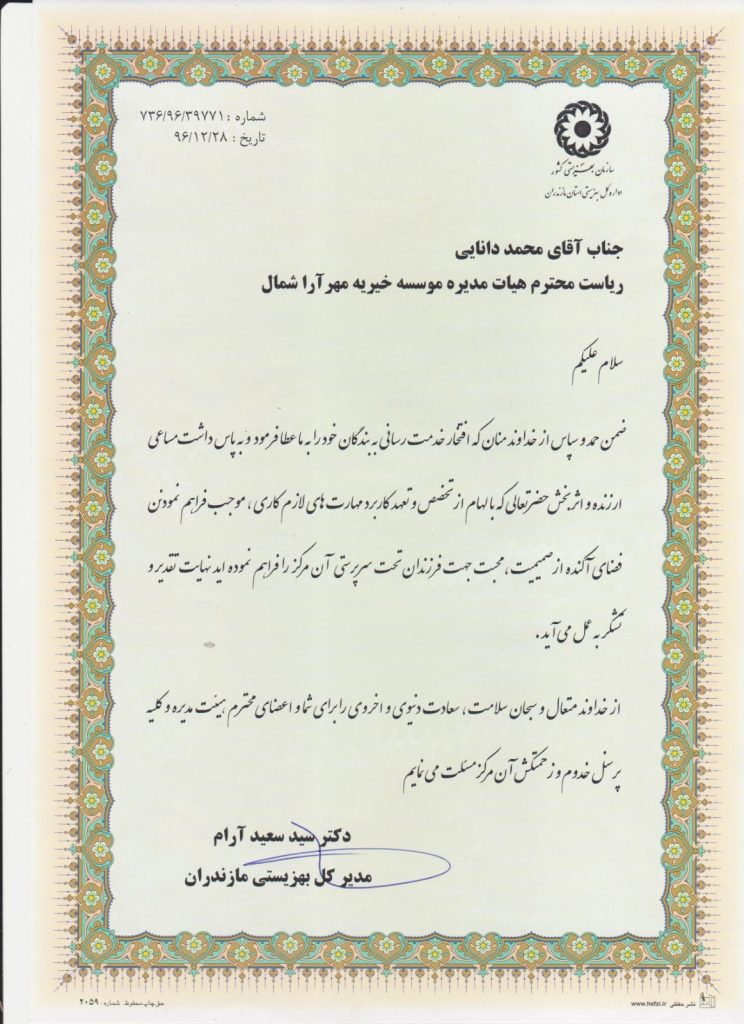 شماره : ۷۳۶/۹۶/۳۹۷۷۱
تاریخ : ۹۶/۱۲/۲۸
سازمان بهزیستی کشور
اداره کل بهزیستی استان مازندران
جناب آقای محمد دانایی
ریاست محترم هیات مدیره موسسه خیریه مهرآرا شمال
سلام علیکم
ضمن حمد و سپاس از خداوند منان که افتخار خدمت رسانی به بندگان خود را به ما عطا فرمود و به پاس داشت مساعی
ارزنده و اثربخش حضرتعالی که با الهام از تخصص و تعهد کاربرد مهارت های لازم کاری ، موجب فراهم نمودن
فضای آکنده از صمیمیت ، محبت جهت فرزندان تحت سرپرستی آن مرکز را فراهم نموده اید نهایت تقدیر و
تشکر به عمل می آید .
از خداوند متعال و سبحان سلامت ، سعادت دنیوی و اخروی را برای شما و اعضای محترم هیئت مدیره و کلیه
پرسنل خدوم و زحمتکش آن مرکز مسئلت می نمایم
دکتر سید سعید آرام
مدیر کل بهزیستی مازندران
نشر حفظی www.hefzi.ir
حق چاپ محفوظ. شماره: ۲۰۵۹